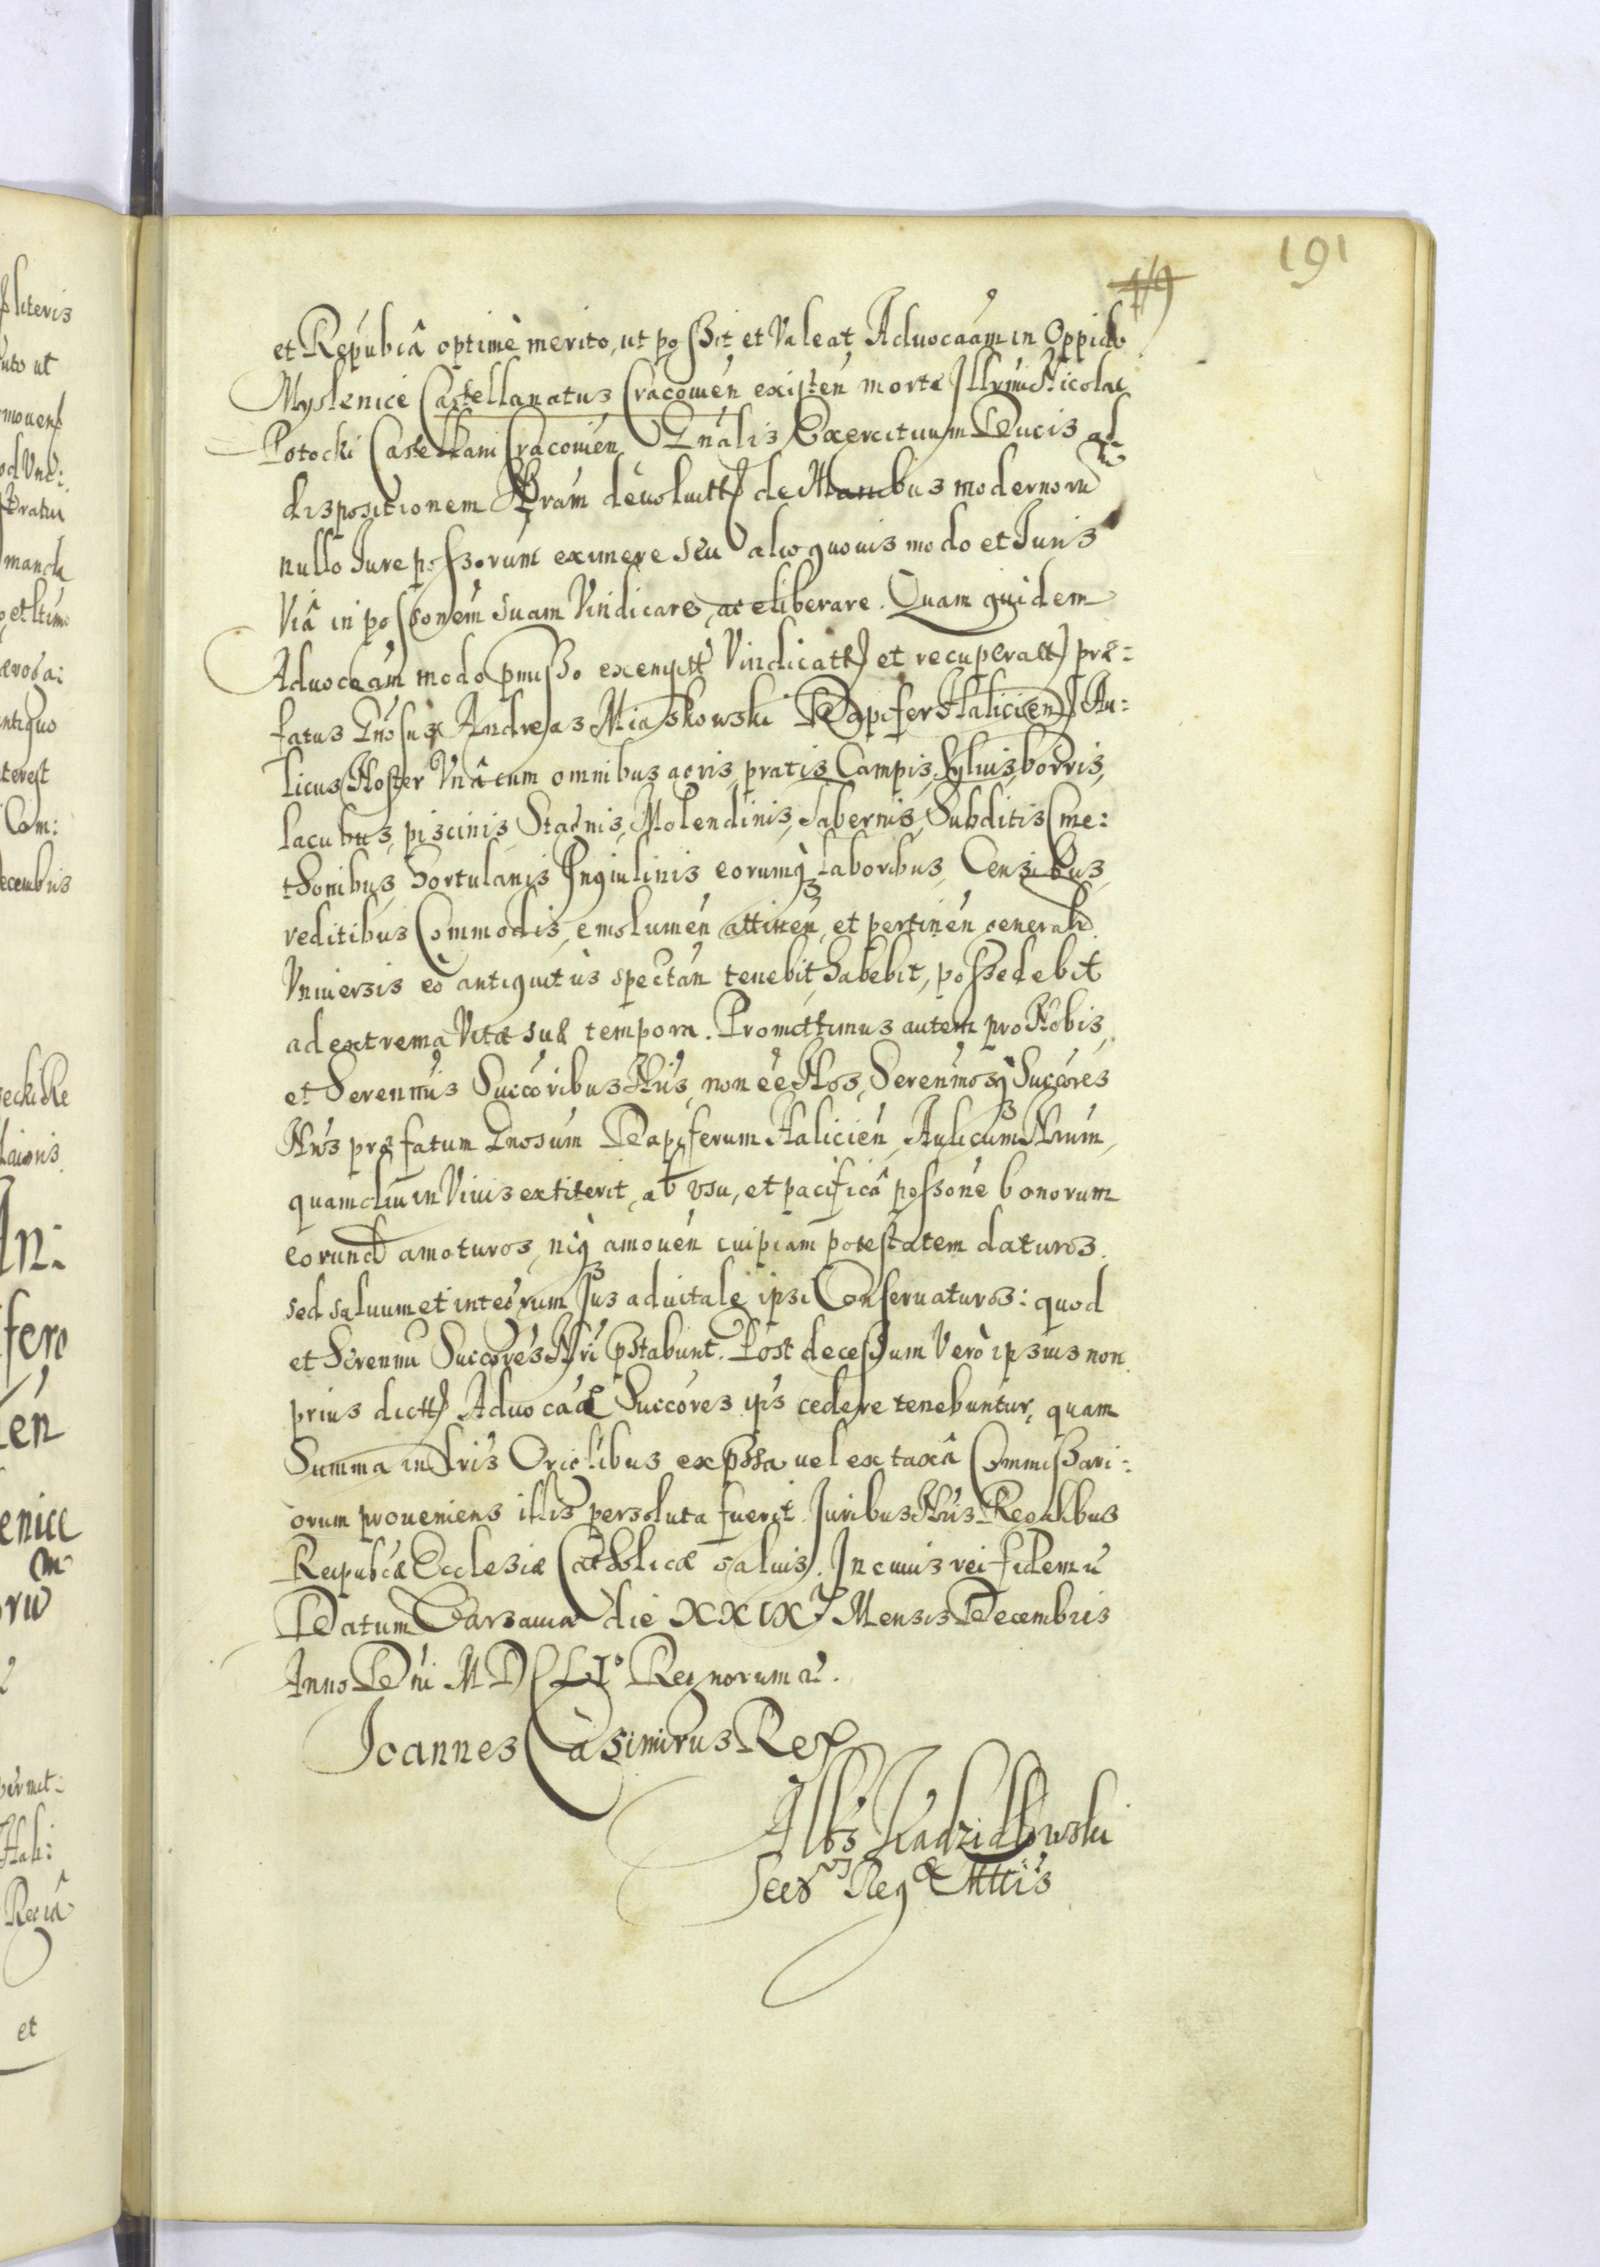 191
149
et Repúbcâ optimè merito, ut poßit et Valeat Aduocaám in Oppido
Myslenice Castellanatus Cracouién existén morte Illrmi Nicolai
Potocki Castellani Cracouién Gnàlis Exercituum Ducis ad
dispositionem Nrám deuolutt de Manibus modernorū
nullo Iure possorum eximere seu alio quouis modo et Iuris
Viâ in possonem suam Vindicare, ac eliberare. Quam quidem
Aduocaám modo pmisso exempt Vindicatt et recuperatt præ:
fatus Gnosus Andreas Miaskowski Dapifer Halicien Au:
licus Noster Vnâ cum omnibus agris, pratis Campis, Syluis, borris,
lacubus, piscinis Stagnis, Molendinis, Tabernis, Subditis Cme:
thonibus, Hortulanis Inquilinis eorumq laboribus, Censibus,
reditibus Commodis, emolumén attinén, et pertinén generalr
Vniuersis eò antiquitùs spectán tenebit, habebit, possedebit
ad extrema Vitæ suæ tempora. Promittimus autem pro Nobis,
et Serenmis Succóribus Nris, non eé Nos, Serenmosq Succóres
Nros præfatum Gnosum Dapiferum Halicién, Aulicum Nrum,
quamdiu in Viuis extiterit, ab vsu, et pacificâ possone bonorum
eorund amoturos, neq amouén cuipiam potestatem daturos,
sed saluum et integrum Ius aduitale ipsi Conseruaturos: quod
et Serenmi Succóres Nri pstabunt. Post decessum Verò ipsius non
prius dictt Aduocaáe Succóres ipis cedere tenebuntur, quam
Summa in Lris Originlibus expssa uel ex taxâ Commissari:
orum proueniens illis persoluta fuerit. Iuribus Nris Regalibus
Reipubcæ Ecclesiæ Catholicæ saluis. In cuius rei fidem ū
Datum Varsauiæ die XXIX Mensis Decembris
Anno Dni MDCLI° Regnorum a.
Ioannes Casimirus Rex
Albs Kadzidłowski
Secr Regæ Mttis